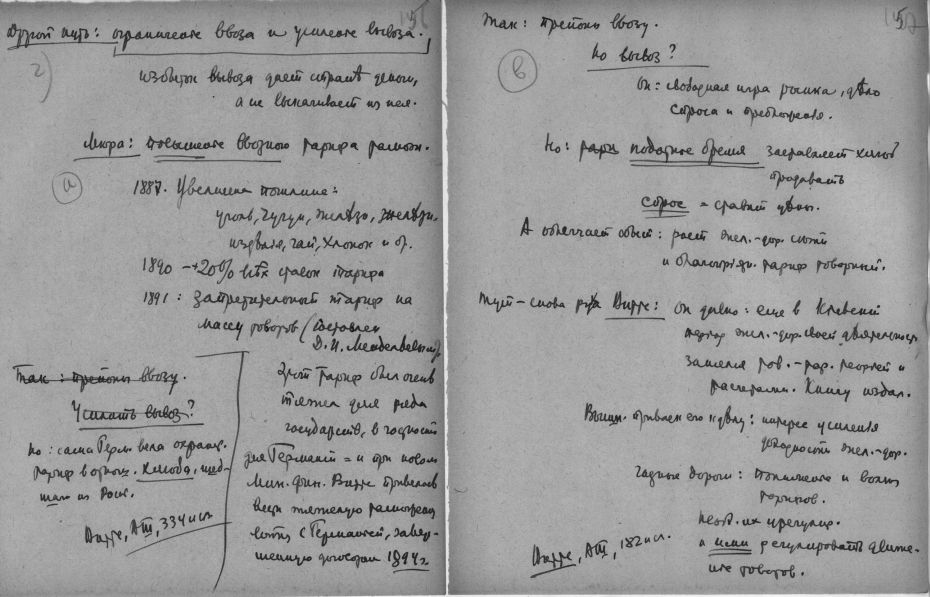 156
Другой путь: ограничение ввоза и усиление вывоза.
2)
избыток вывоза дает стране деньги,
а не выкачивает из нея.
Мѣра: повышение ввозного тарифа
а
1887. Увеличена пошлина:
уголь, чугун, желѣзо,
издѣлия, чай, хлопок и др.
1890 – +20% всѣх ставок тарифа
1891: Запретительный тариф на
массу товаров (составлен
Д. И. Менделеевым).
Так: препоны ввозу.
Усилить вывоз?
Но: сама Герм. вела охранит.
тариф в отнош. хлѣба,
из Росс.
Витте, АIII, 334 и сл.
Этот тариф был очень
тяжел для ряда
государств, в частности
для Германии = и при новом
Мин. фин. Витте привелось
вести тяжелую
войну с Германией, завер-
шенную договором 1894 г.
157
Так: препоны ввозу.
Но вывоз?
в
Он: свободная игра рынка, дѣло
спроса и предложения.
Но: податное бремя заставляет хлѣб
продавать
Спрос = ставит цѣны.
А облегчает сбыт: рост жел.-дор. сѣти
и благоприятн. тариф товарный.
Тут – снова Витте: он давно: еще в Киевский
период жел.-дор. своей дѣятельности
занялся тов.-тар. теорией и
расчетами. Книгу издал.
Вышн. привлек его к дѣлу: интерес усиления
доходности жел.-дор.
Частные дороги: понижение и войны
тарифов.
Необ. их урегулир.
и ими регулировать движе-
ние товаров.
Витте, АIII, 182 и сл.